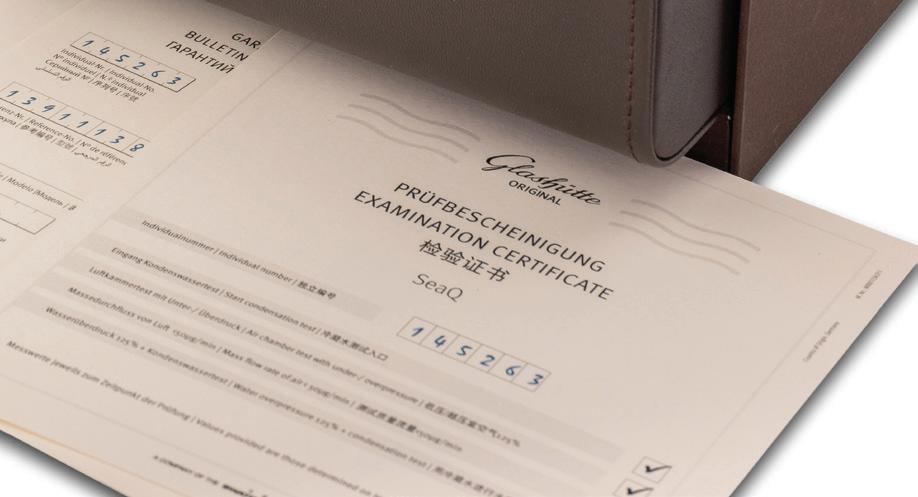 GAR
BULLETIN
ГАРАНТИЙ
145263
Individual-Nr. | Individual-No.
Nº individuel | N.º individual
Серийный № | 序列号 | 序號
1391138
renz-Nr. | Reference-No. | Nº de référen
| 参考编号 | 型號 |
| Modelo | Модель |
Glashütte
ORIGINAL
PRÜFBESCHEINIGUNG
EXAMINATION CERTIFICATE
检验证书
SeaQ
145263
Individualnummer | Individual number | 独立编号
Eingang Kondenswassertest | Start condensation test | 冷凝水测试入口
Luftkammertest mit Unter-/ Überdruck | Air chamber test with under-/ overpressure | 低压/超压室空气125%
Massedurchfluss von Luft <50µg/min | Mass flow rate of air < 50µg/min | 测试质量流量<50µg/min
Wasserüberdruck 125% + Kondenswassertest | Water overpressure 125% + condensation test |
Messwerte jeweils zum Zeitpunkt der Prüfung | Values provided are those determined on
A COMPANY OF THE